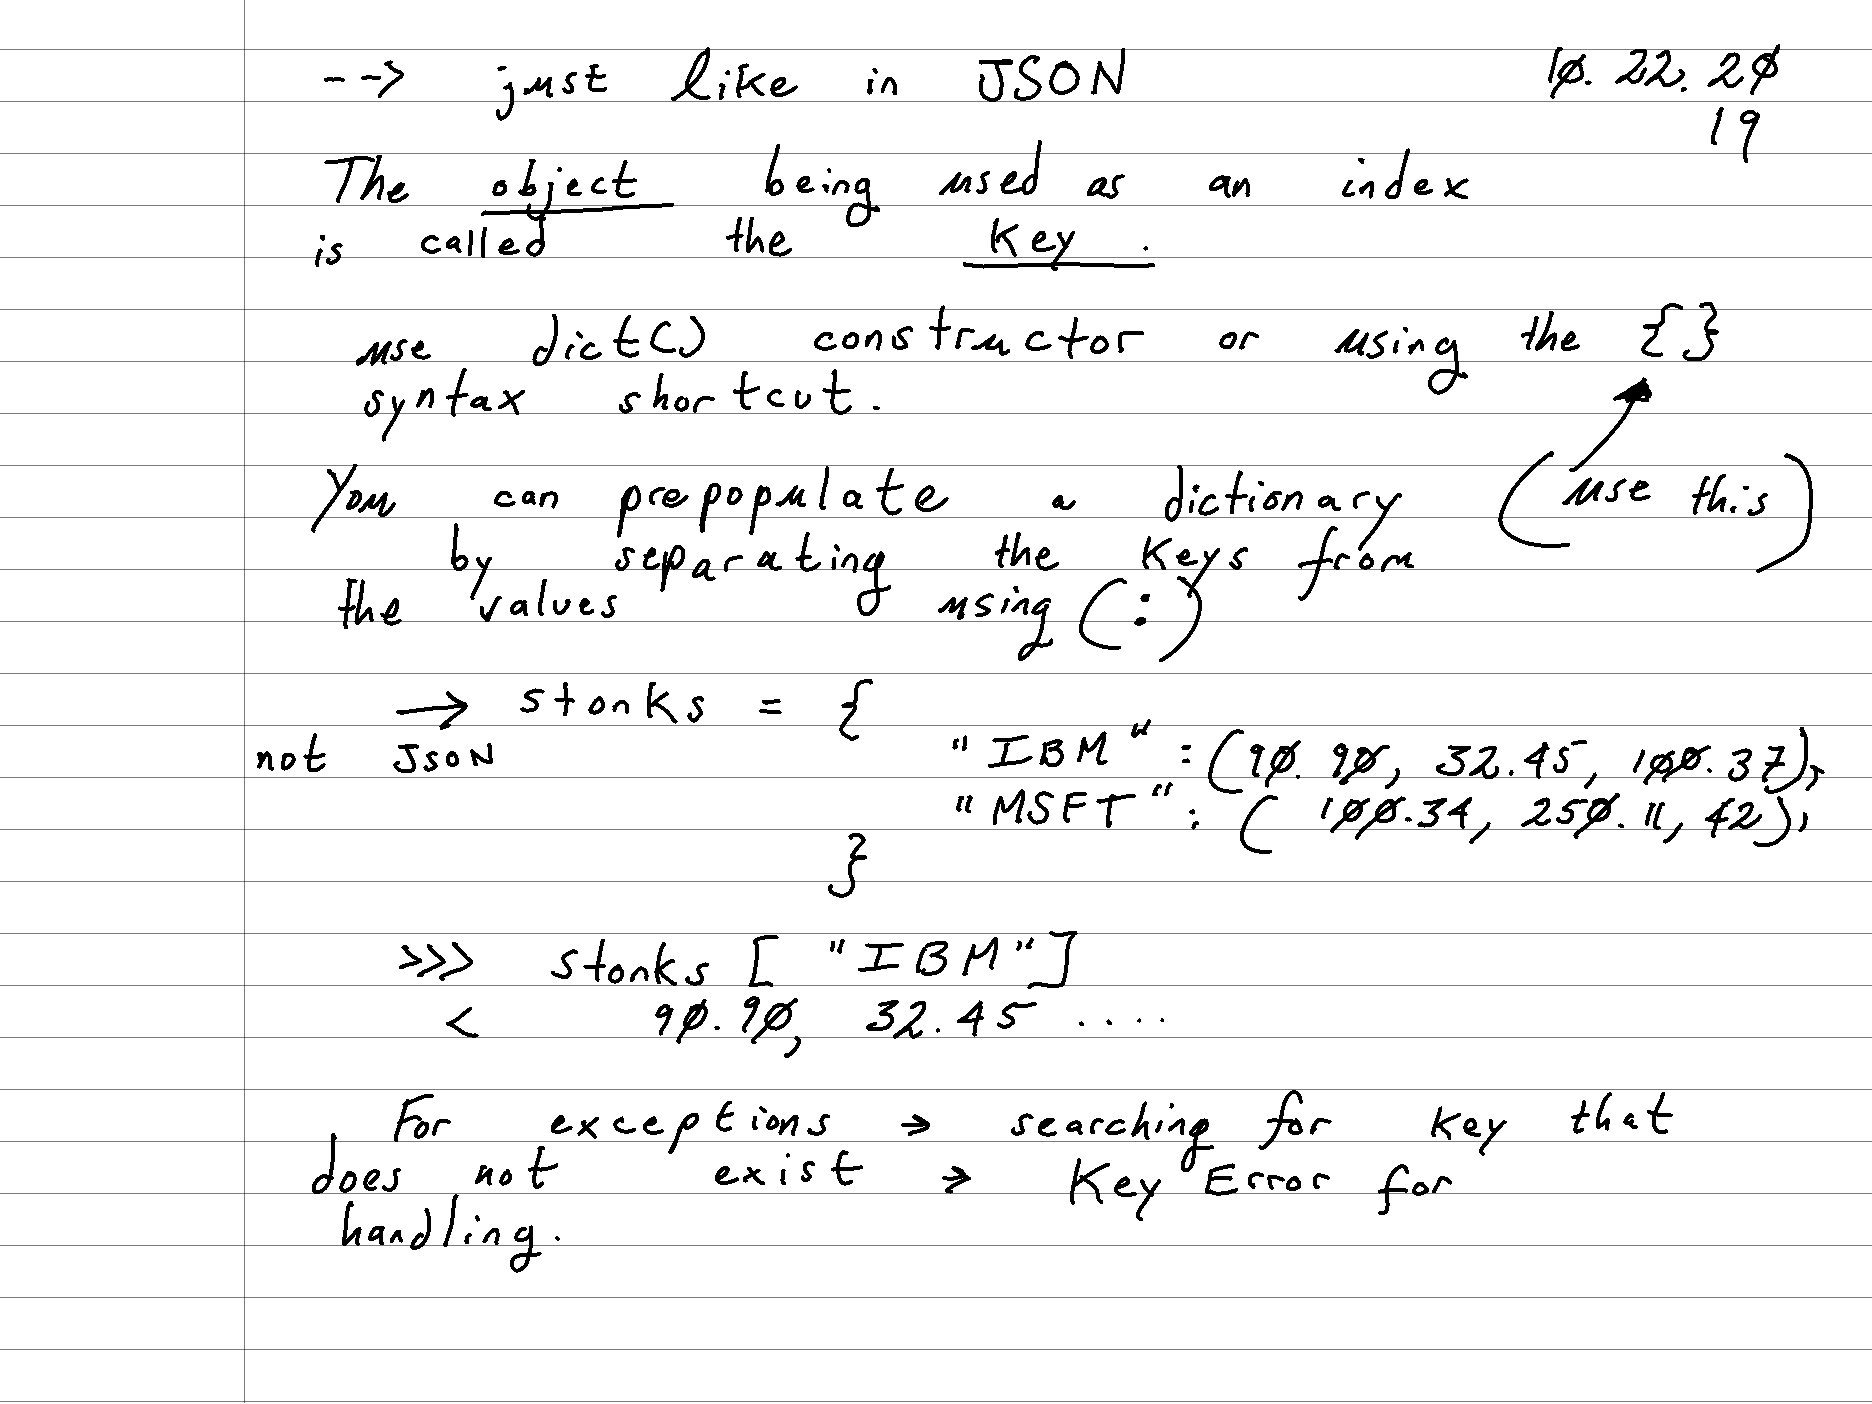 --> just like in JSON 10.22.20
19
The object being used as an index
is called the key.
use dict() constructor or using the {}
syntax shortcut.
You can prepopulate a dictionary (use this)
by separating the keys from
the values using (:)
→ stonks = {
not JSON "IBM" : (90.90, 32.45, 100.37),
"MSFT" : (100.34, 250.11, 42),
}
>>> stonks ["IBM"]
< 90.90, 32.45 ....
For exceptions → searching for key that
does not exist → Key Error for
handling.